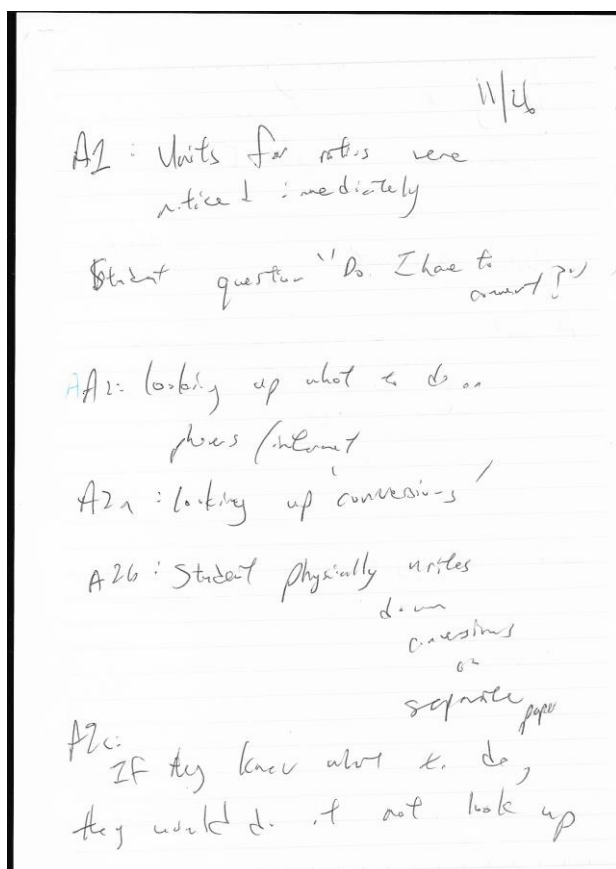 11/26
A1: Units for ratios were
noticed imediately
Student question "Do I have to
convert?"
A2: looking up what to do..
phones/internet
A2a: looking up 'conversions'
A2b: Student physically writes
down
conversions
on
separate paper
A2c:
If they knew what to do,
they would do it not look up